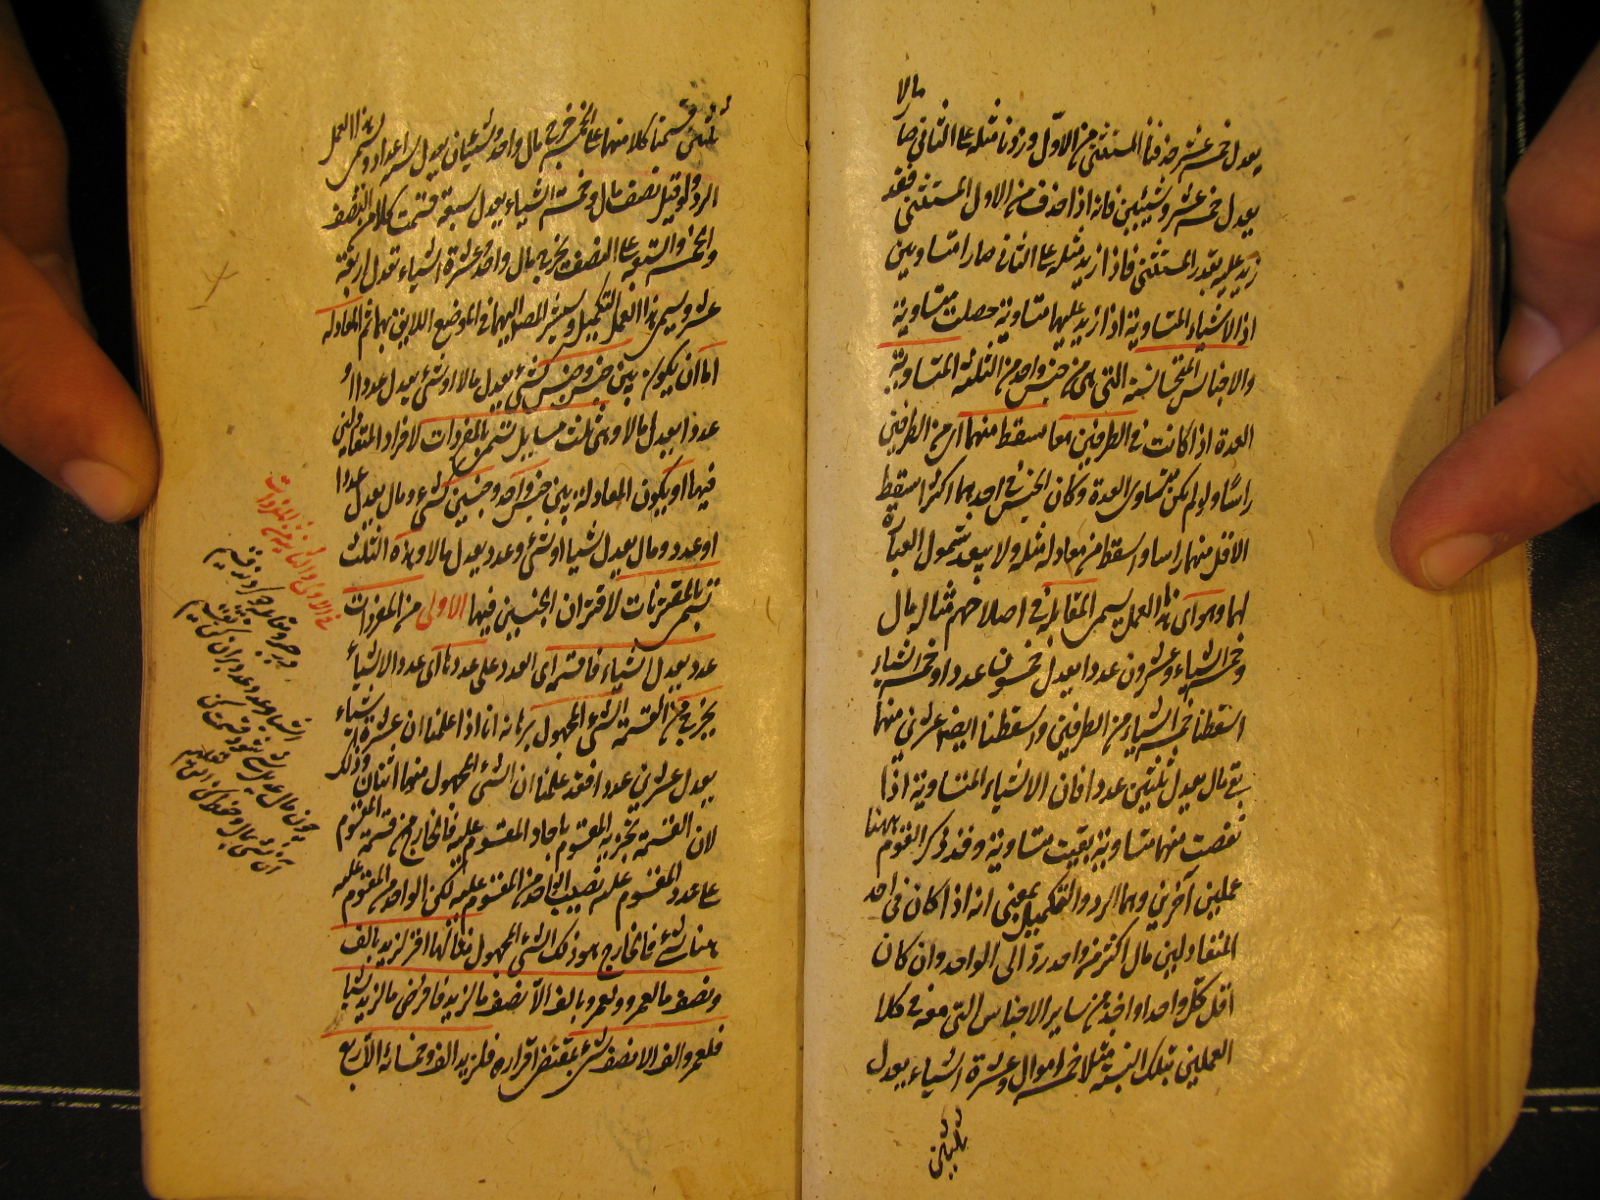 مالا
يعدل خمسة عشر حذفنا المستثنى من الاول وزدنا مثله على الثانى صار
يعدل خمسة عشر وشيئين فانه اذا حذف من الاول المستثنى فقد
زيد عليه بقدر المستثنى فاذا زيد مثله على الثانى صارا متساويين
اذ الاشياء المتساوية اذا زيد عليها متساوية حصلت متساوية
والاجناس المتجانسة التى هى من جنس واحد من الثلثة المتساوية
العدة اذا كانت فى الطرفين معا سقط منهما اى من الطرفين
راسا ولو لم يكن متساوى العدة وكان الجنس فى احدهما اكثر اسقط
الاقل منهما راسا واسقط من معادله مثله ولا يبعد شمول العبارة
لها وهو اى هذا العمل يسمى المقابلة فى اصلاحهم مثاله مال
وخمسة اشياء وعشرون عددا يعدل خمسون عددا وخمسة اشياء
اسقطنا خمسة اشياء من الطرفين واسقطنا ايضا عشرين منهما
بقى مال يعدل ثلثين عددا فان الاشياء المتساوية اذا
نقصت منها متساوية بقيت متساوية وقد ذكر القوم ههنا
عملين آخرين وهما الرد والتكميل بمعنى انه اذا كان فى احد
المتعادلين مال اكثر من واحد رد الى الواحد وان كان
اقل كمل واحدا واخذ من ساير الاجناس التى معه فى كلا
العملين بتلك النسبة مثلا خمسة اموال وعشرة اشياء يعدل
ثلثين
ثلثين قسمنا كلا منها على الخمسة خرج مال واحد وشيئان يعدل ستة اعداد ويسمى هذا العمل
الرد ولو قيل نصف مال وخمسة اشياء يعدل سبعة قسمت كلا من النصف
والخمسة والسبعة على النصف يخرج مال واحد وعشرة اشياء تعدل اربعة
عشر ويسمى هذا العمل التكميل وسيشير المص اليهما فى الموضع اللايق بهما ثم المعادلة
اما ان يكون بين جنس وجنس كشئ يعدل مالا او شئ يعدل عددا او
عددا يعدل مالا وهى ثلث مسايل تسمى بالمفردات لافراد المتعادلين
فيها او يكون المعادلة بين جنس واحد وجنسين كشئ ومال يعدل عددا
او عدد ومال يعدل شيئا او شئ وعدد يعدل مالا وهذه الثلث
تسمى بالمقترنات لاقتران الجنسين فيها الاولى من المفردات
عدد يعدل اشياء فاقسم اى العدد على عددها اى عدد الاشياء
يخرج من القسمة الشئ المجهول برهانه انا اذا علمنا ان عشرة اشياء
يعدل عشرين عددا فقد علمنا ان الشئ المجهول منها اثنان وذلك
لان القسمة تجزية المقسوم باحاد المقسوم عليه فالخارج من قسمة المقسوم
على عدد المقسوم عليه نصيب الواحد من المقسوم عليه لكن الواحد من المقسوم عليه
هنا شئ فالخارج هو ذلك الشئ المجهول مثالها اقر لزيد بالف
ونصف ما لعمرو ولعمرو بالف الا نصف ما لزيد فافرض ما لزيد شيئا
فلعمرو الف الا نصف شئ بمقتضى اقراره فلزيد الف وخمسائة الا ربع